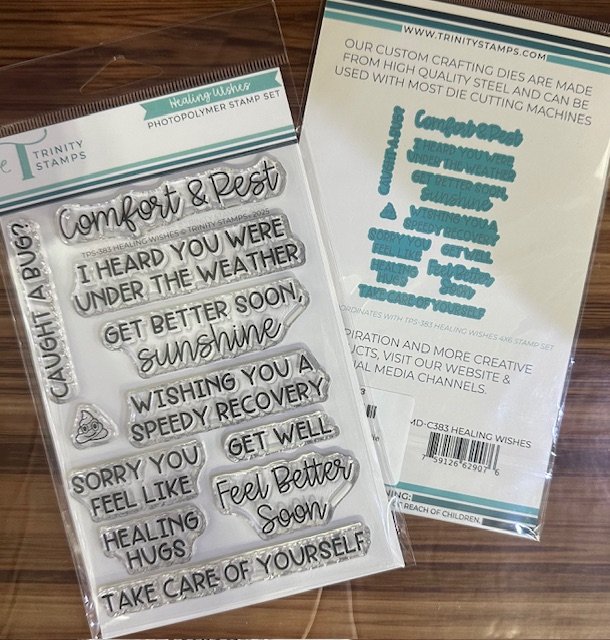 Healing Wishes
PHOTOPOLYMER STAMP SET
TRINITY
STAMPS
Comfort & Rest
TPS-383 HEALING WISHES © TRINITY STAMPS 2025
CAUGHT A BUG?
I HEARD YOU WERE
UNDER THE WEATHER
GET BETTER SOON,
sunshine
WISHING YOU A
SPEEDY RECOVERY
SORRY YOU
FEEL LIKE
GET WELL
HEALING
HUGS
Feel Better
Soon
TAKE CARE OF YOURSELF
WWW.TRINITYSTAMPS.COM
OUR CUSTOM CRAFTING DIES ARE MADE
FROM HIGH QUALITY STEEL AND CAN BE
USED WITH MOST DIE CUTTING MACHINES
Comfort & Rest
CAUGHT A BUG?
I HEARD YOU WERE
UNDER THE WEATHER
GET BETTER SOON,
sunshine
WISHING YOU A
SPEEDY RECOVERY
SORRY YOU
FEEL LIKE
GET WELL
HEALING
HUGS
Feel Better,
Soon
TAKE CARE OF YOURSELF
COORDINATES WITH TPS-383 HEALING WISHES 4X6 STAMP SET
AND MORE CREATIVE
VISIT OUR WEBSITE &
MEDIA CHANNELS.
MD-C383 HEALING WISHES
7 59126 62907 6
REACH OF CHILDREN.